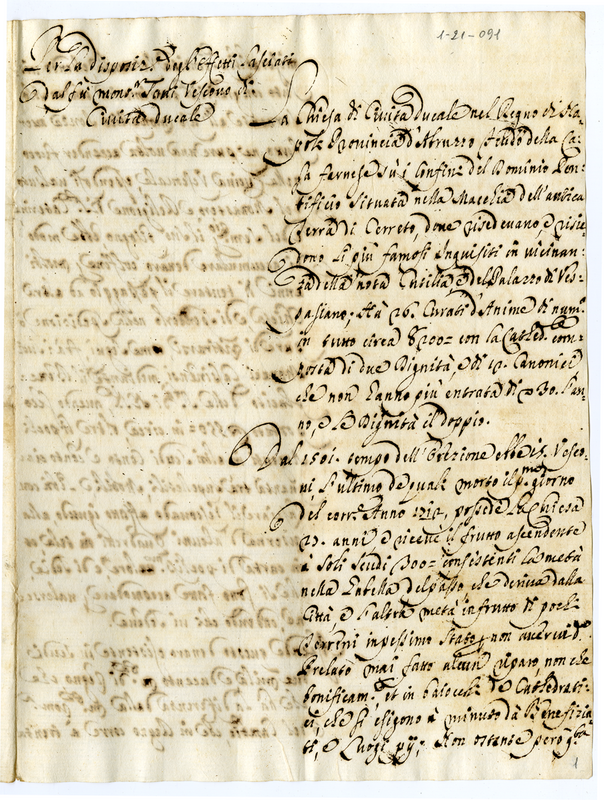 1-21-091
Per la disposiz.e degl'Effetti lasciati
dal fù mons.r Tomi Vescovo di
Civita ducale
La Chiesa di Civita ducale nel Regno di Na-
poli Provincia d'Abruzzo feudo della Ca-
sa farnese sù i Confini del Dominio Pon-
tificio situata nella Macchia dell'antica
Terra di Cerreto, dove risedevano, e risie
dono li più famosi Inquisiti in vicinan-
za della nota Cutilia, e del Palazzo di Ves-
pasiano; Hà 26. Curati d'Anime di num.o
in tutto circa 8200= con la Catted.le com-
posta di due Dignità, e di 12. Canonici
che non hanno più entrata di ∇ 30. l'an-
no, e le Dignità il doppio.
Dal 1501. tempo dell'Erezione ebbe 15. Vesco-
vi l'ultimo de quali morto il p.mo giorno
del corr.e Anno 1717, possedè la Chiesa
27. anni e ricevè il frutto ascendente
à soli scudi 300= consistenti la metà
nella Gabella del passo che deriva dalla
Città, e l'altra metà in frutto di pochi
Terrini in pessimo stato, non avervi d.o
Prelato mai fatto alcun riparo, non che
bonificam.to, et in baiocchi de Cattedrati-
ci, che si esigono à minuto dà Benefizia
ti, e Luogi pij; Non ostante però q.sta
1